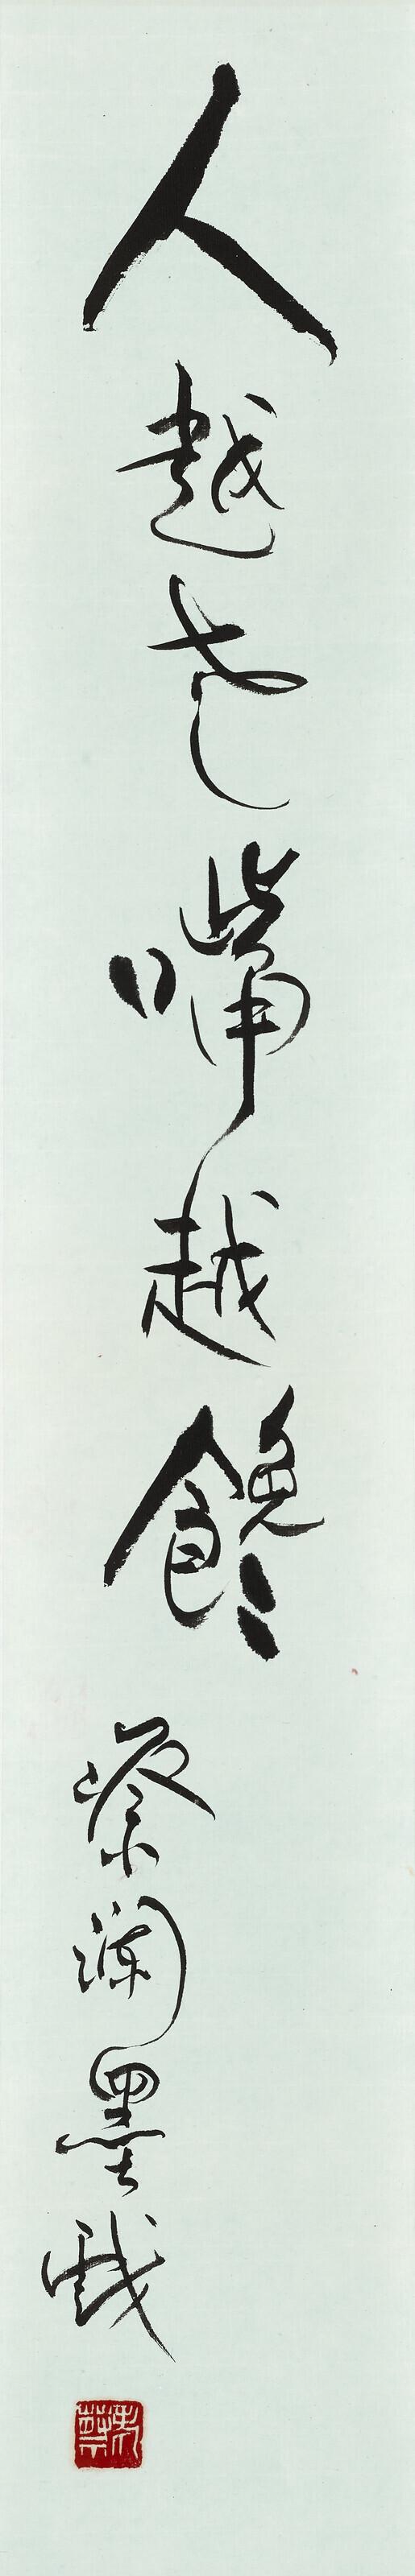 人越老嘴越饞
蔡瀾墨戲